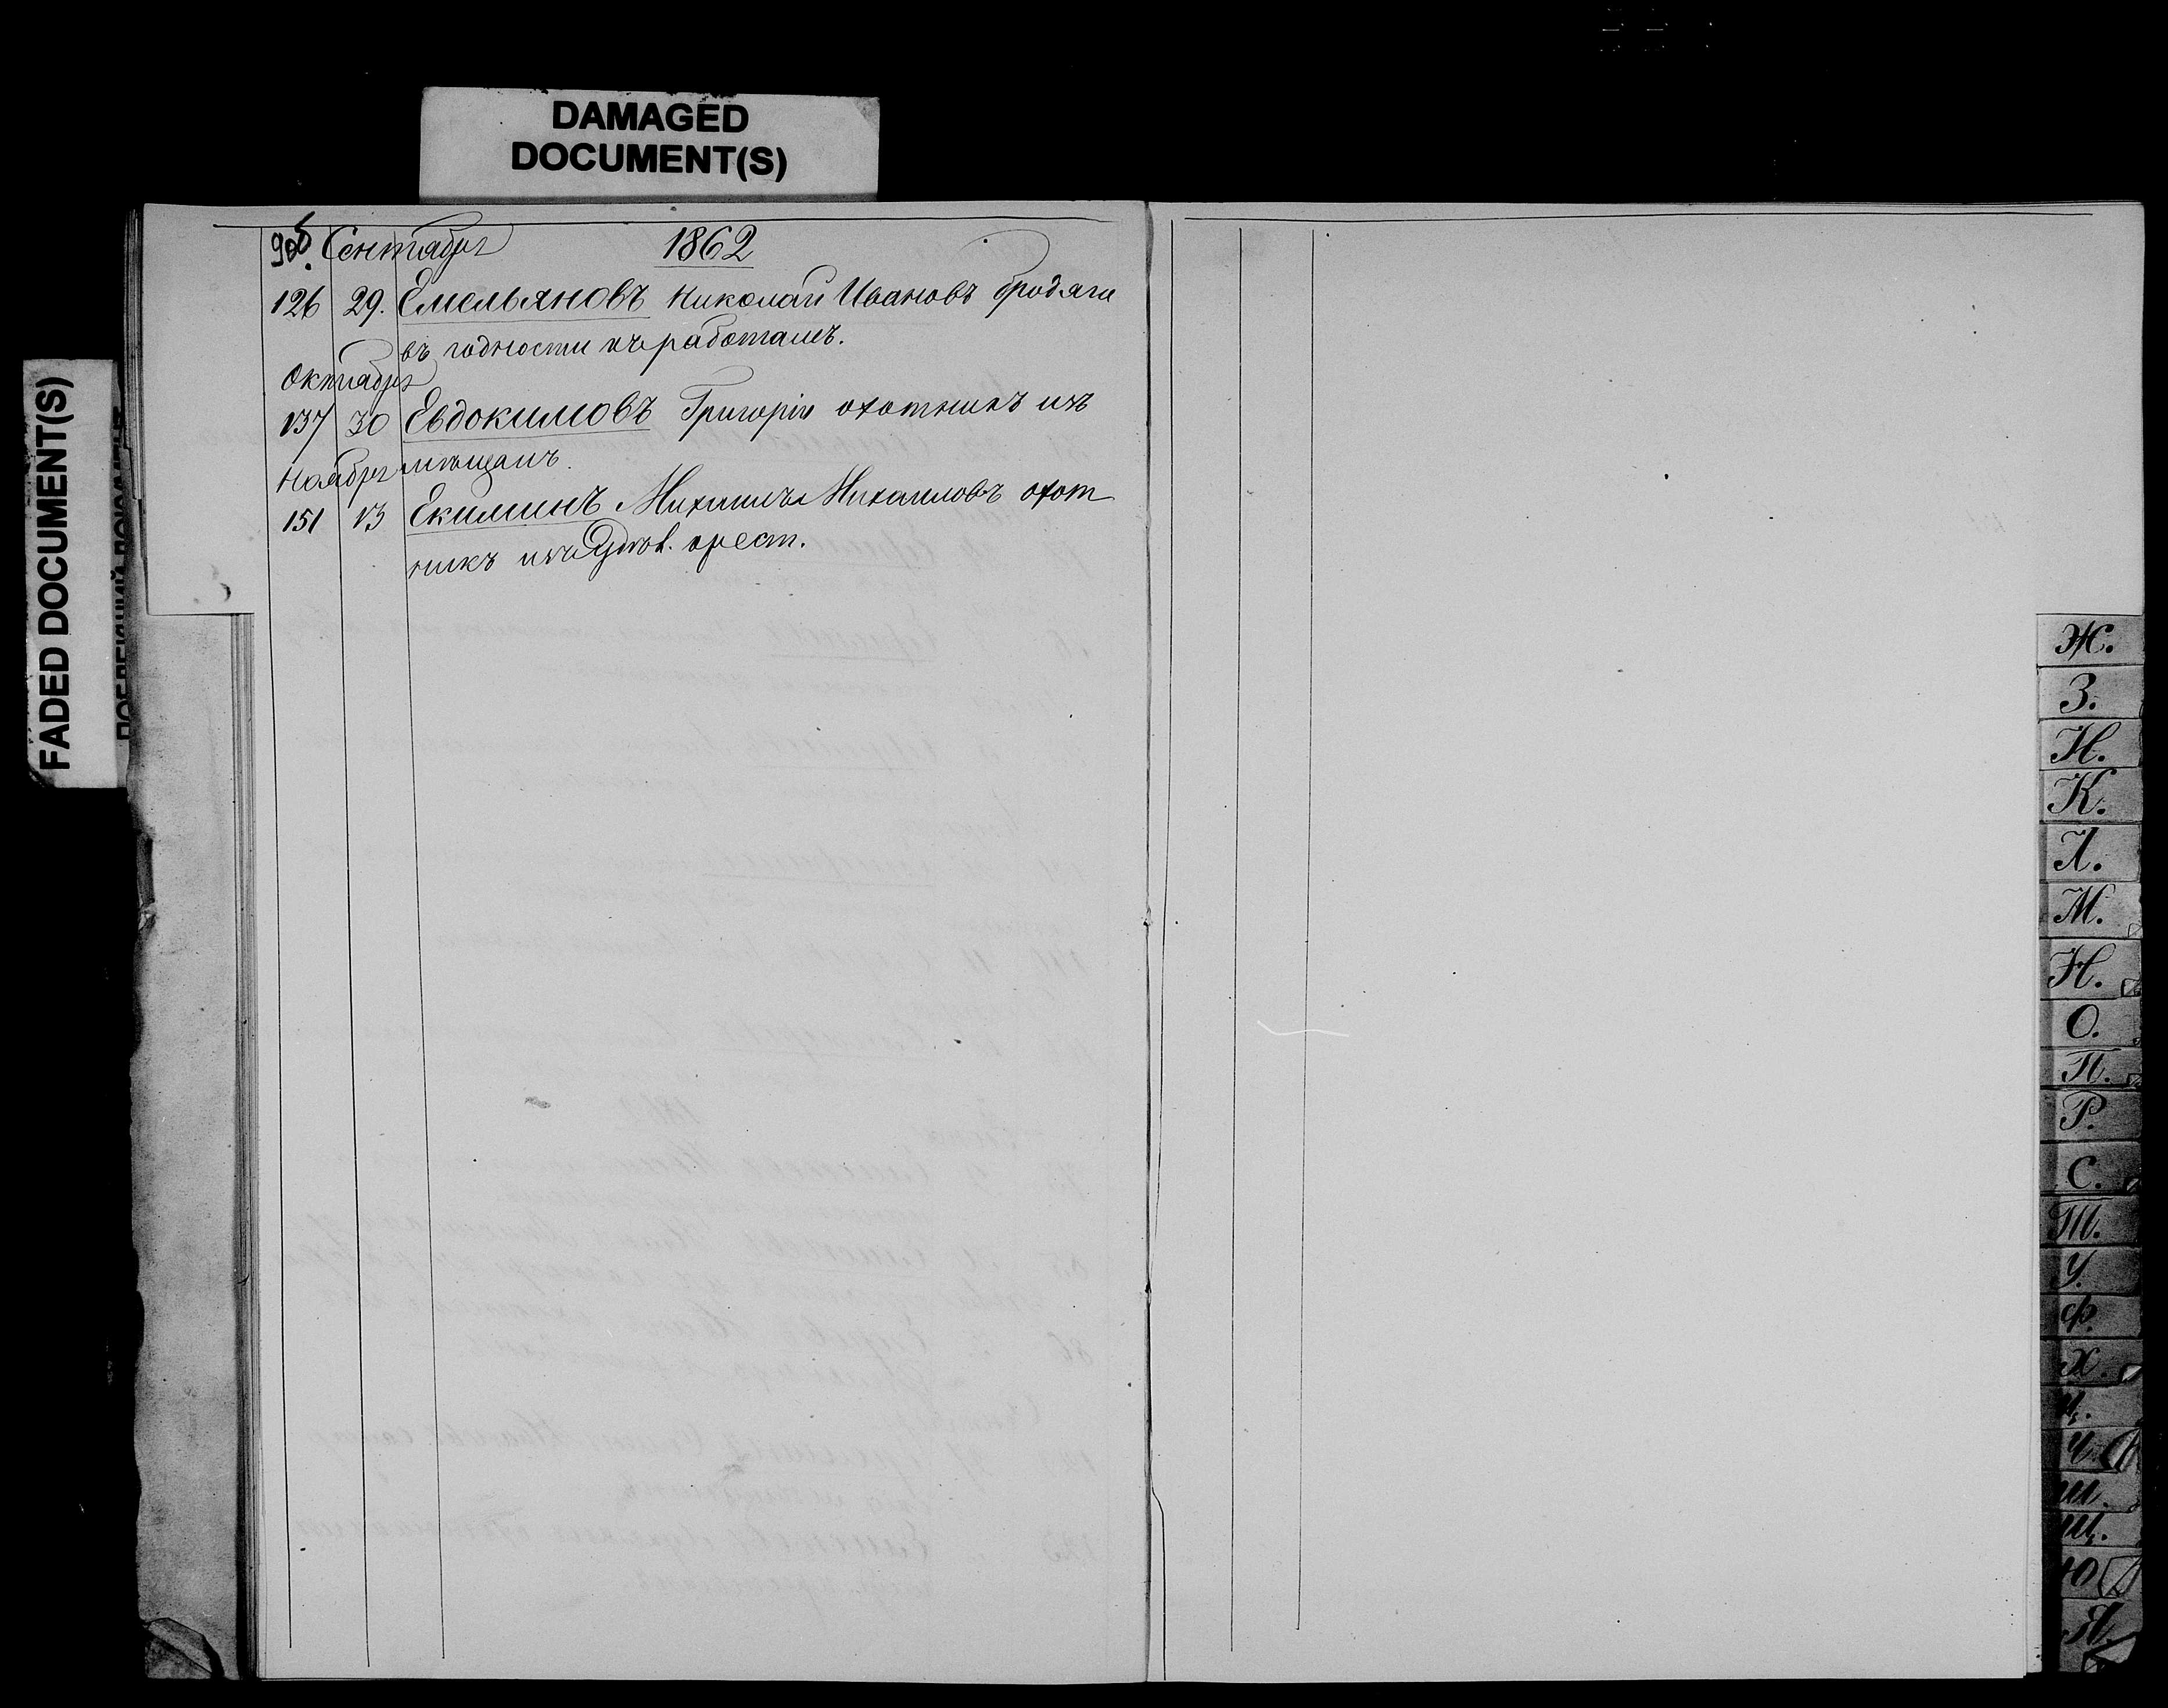 DAMAGED
DOCUMENT(S)
FADED DOCUMENT(S)
Сентябрь 1862
126 29. Емельяновъ Николай Ивановъ бродяга
въ годности къ работамъ.
Октябрь
137 30 Евдокимовъ Григорій охотникъ изъ
Ноябрь мѣщанъ.
151 13 Екиминъ Михаилъ Михаиловъ охот
никъ изъ Удѣл. крест.
Ж.
З.
И.
К.
Л.
М.
Н.
О.
П.
Р.
С.
Т.
У.
Ф.
Х.
Ц.
Ч.
Ш.
Щ.
Ю
Я.